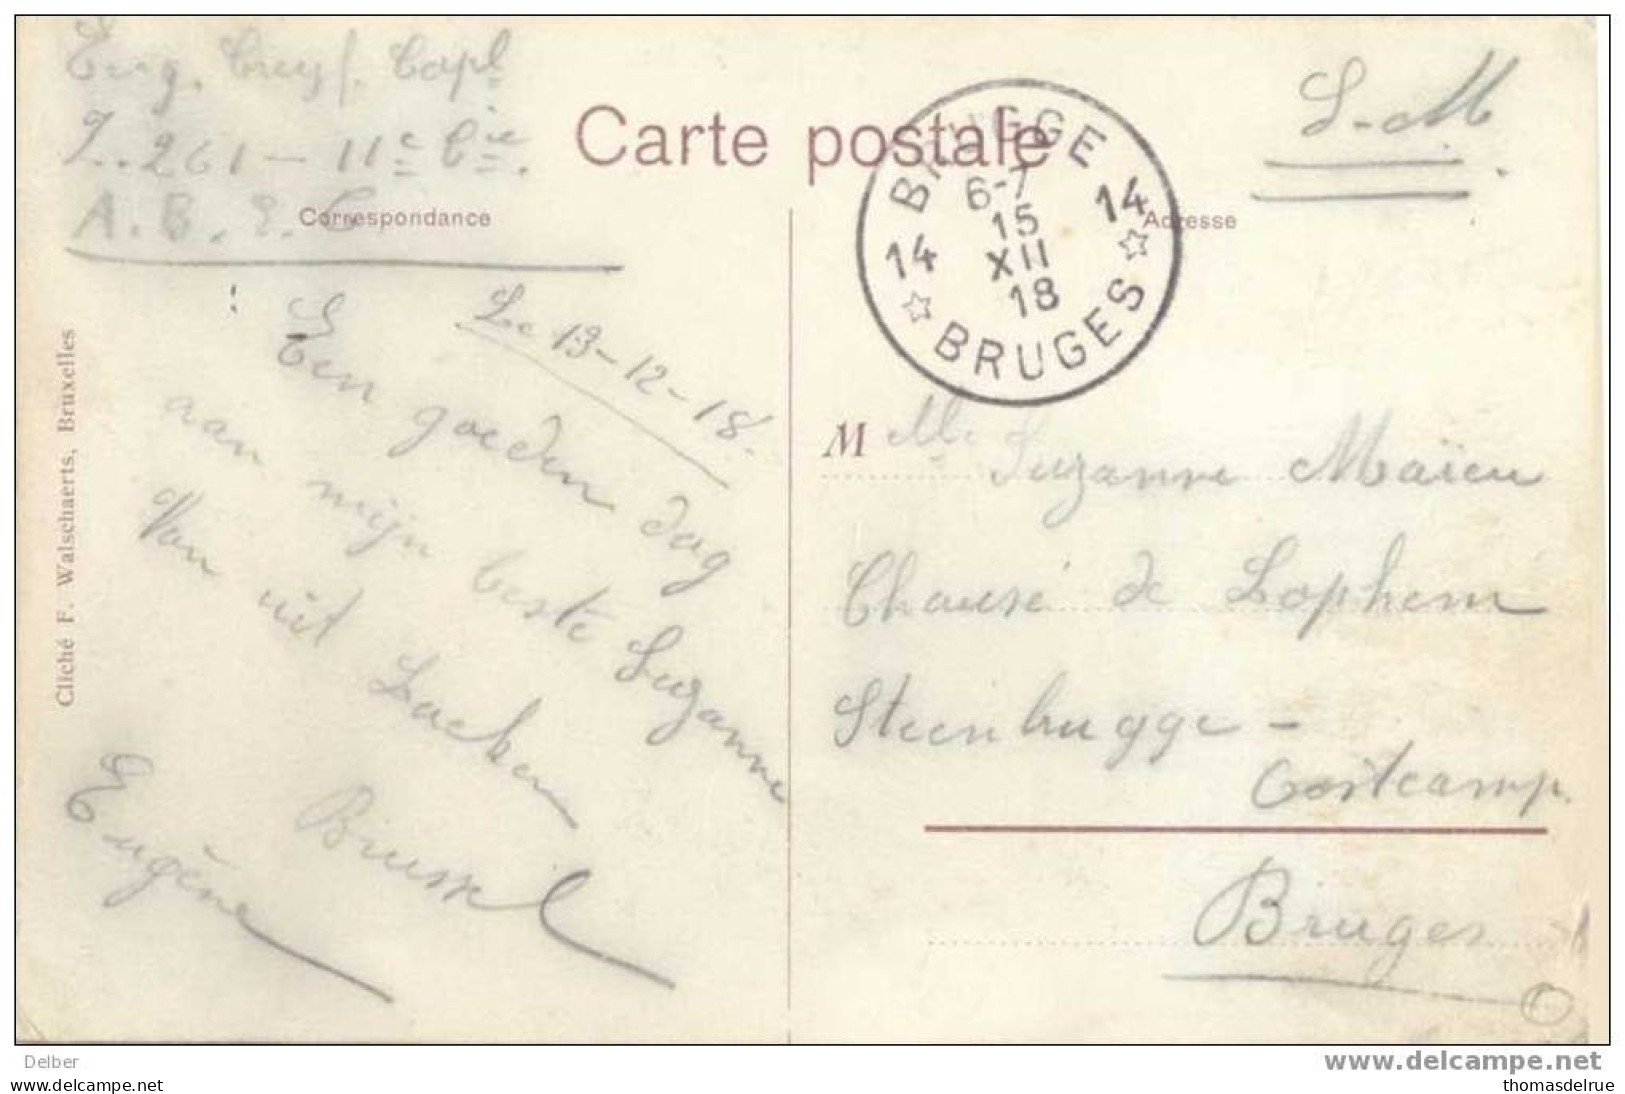 Eug. Cuyp. Capl
Z. 261 - 11e Cie.
A. B. E. C
Carte postale
Correspondance
Adresse
S. - M.
BRUGGE
6-7
15
XII
18
14 14
BRUGES
Le 13-12-18.
Een goeden dag
aan mijn beste Suzanne
Van uit Laeken
Brussel
Eugène
Cliché F. Walschaerts, Bruxelles
M Mlle Suzanne Maïeu
Chausé de Lophem
Steenbrugge -
Oostcamp.
Bruges
Delber
www.delcampe.net
thomasdelrue